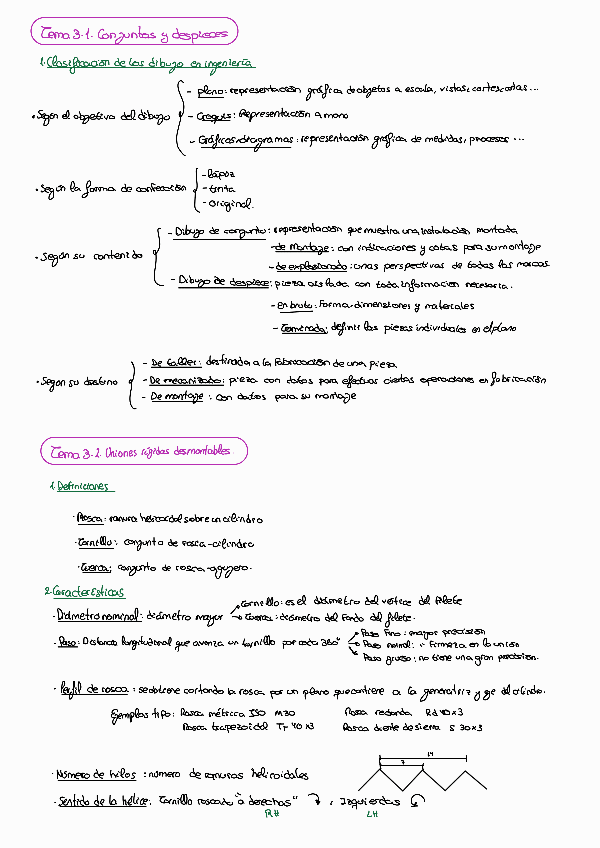 Tema 3.1. Conjuntos y despieces
1. Clasificación de los dibujo en ingeniería
- plano: representación gráfica de objetos a escala, vistas, cortes, cotas ...
• Según el objetivo del dibujo
- Croquis: Representación a mano
- Gráficos, diagramas: representación gráfica de medidas, procesos ...
- lápiz
• Según la forma de confección
- tinta
- original.
- Dibujo de conjunto: representación que muestra una instalación montada
- de Montaje: con indicaciones y cotas para su montaje
• Según su contenido
- de explosionado: unas perspectivas de todas las marcas
- Dibujo de despiece: pieza aislada con toda información necesaria.
- En bruto: Forma dimensiones y materiales
- Terminada: definir las piezas individuales en el plano
- De taller: destinada a la fabricación de una pieza
• Según su destino
- De mecanizado: pieza con datos para efectuar ciertas operaciones en fabricación
- De montaje: con datos para su montaje
Tema 3.2. Uniones rígidas desmontables
1. Definiciones
· Rosca: ranura helicoidal sobre un cilindro
· Tornillo: conjunto de rosca-cilindro
· Tuerca: conjunto de rosca-agujero.
2. Características
Tornillo: es el diámetro del vértice del filete
· Diámetro nominal: diámetro mayor
Tuerca: diámetro del fondo del filete.
Paso fino: mayor precisión
· Paso: Distancia longitudinal que avanza un tornillo por cada 360°
Paso normal: + firmeza en la unión
Paso grueso: no tiene una gran precisión.
· Perfil de rosca: se obtiene cortando la rosca por un plano que contiene a la generatriz y eje del cilindro.
Ejemplos tipo: Rosca métrica ISO M30 Rosca redonda Rd 40×3
Rosca trapezoidal Tr 40×3 Rosca diente de sierra S 30×3
14
7
· Número de hilos: número de ranuras helicoidales
· Sentido de la hélice: Tornillo roscado "a derechas" , Izquierdas
RH LH